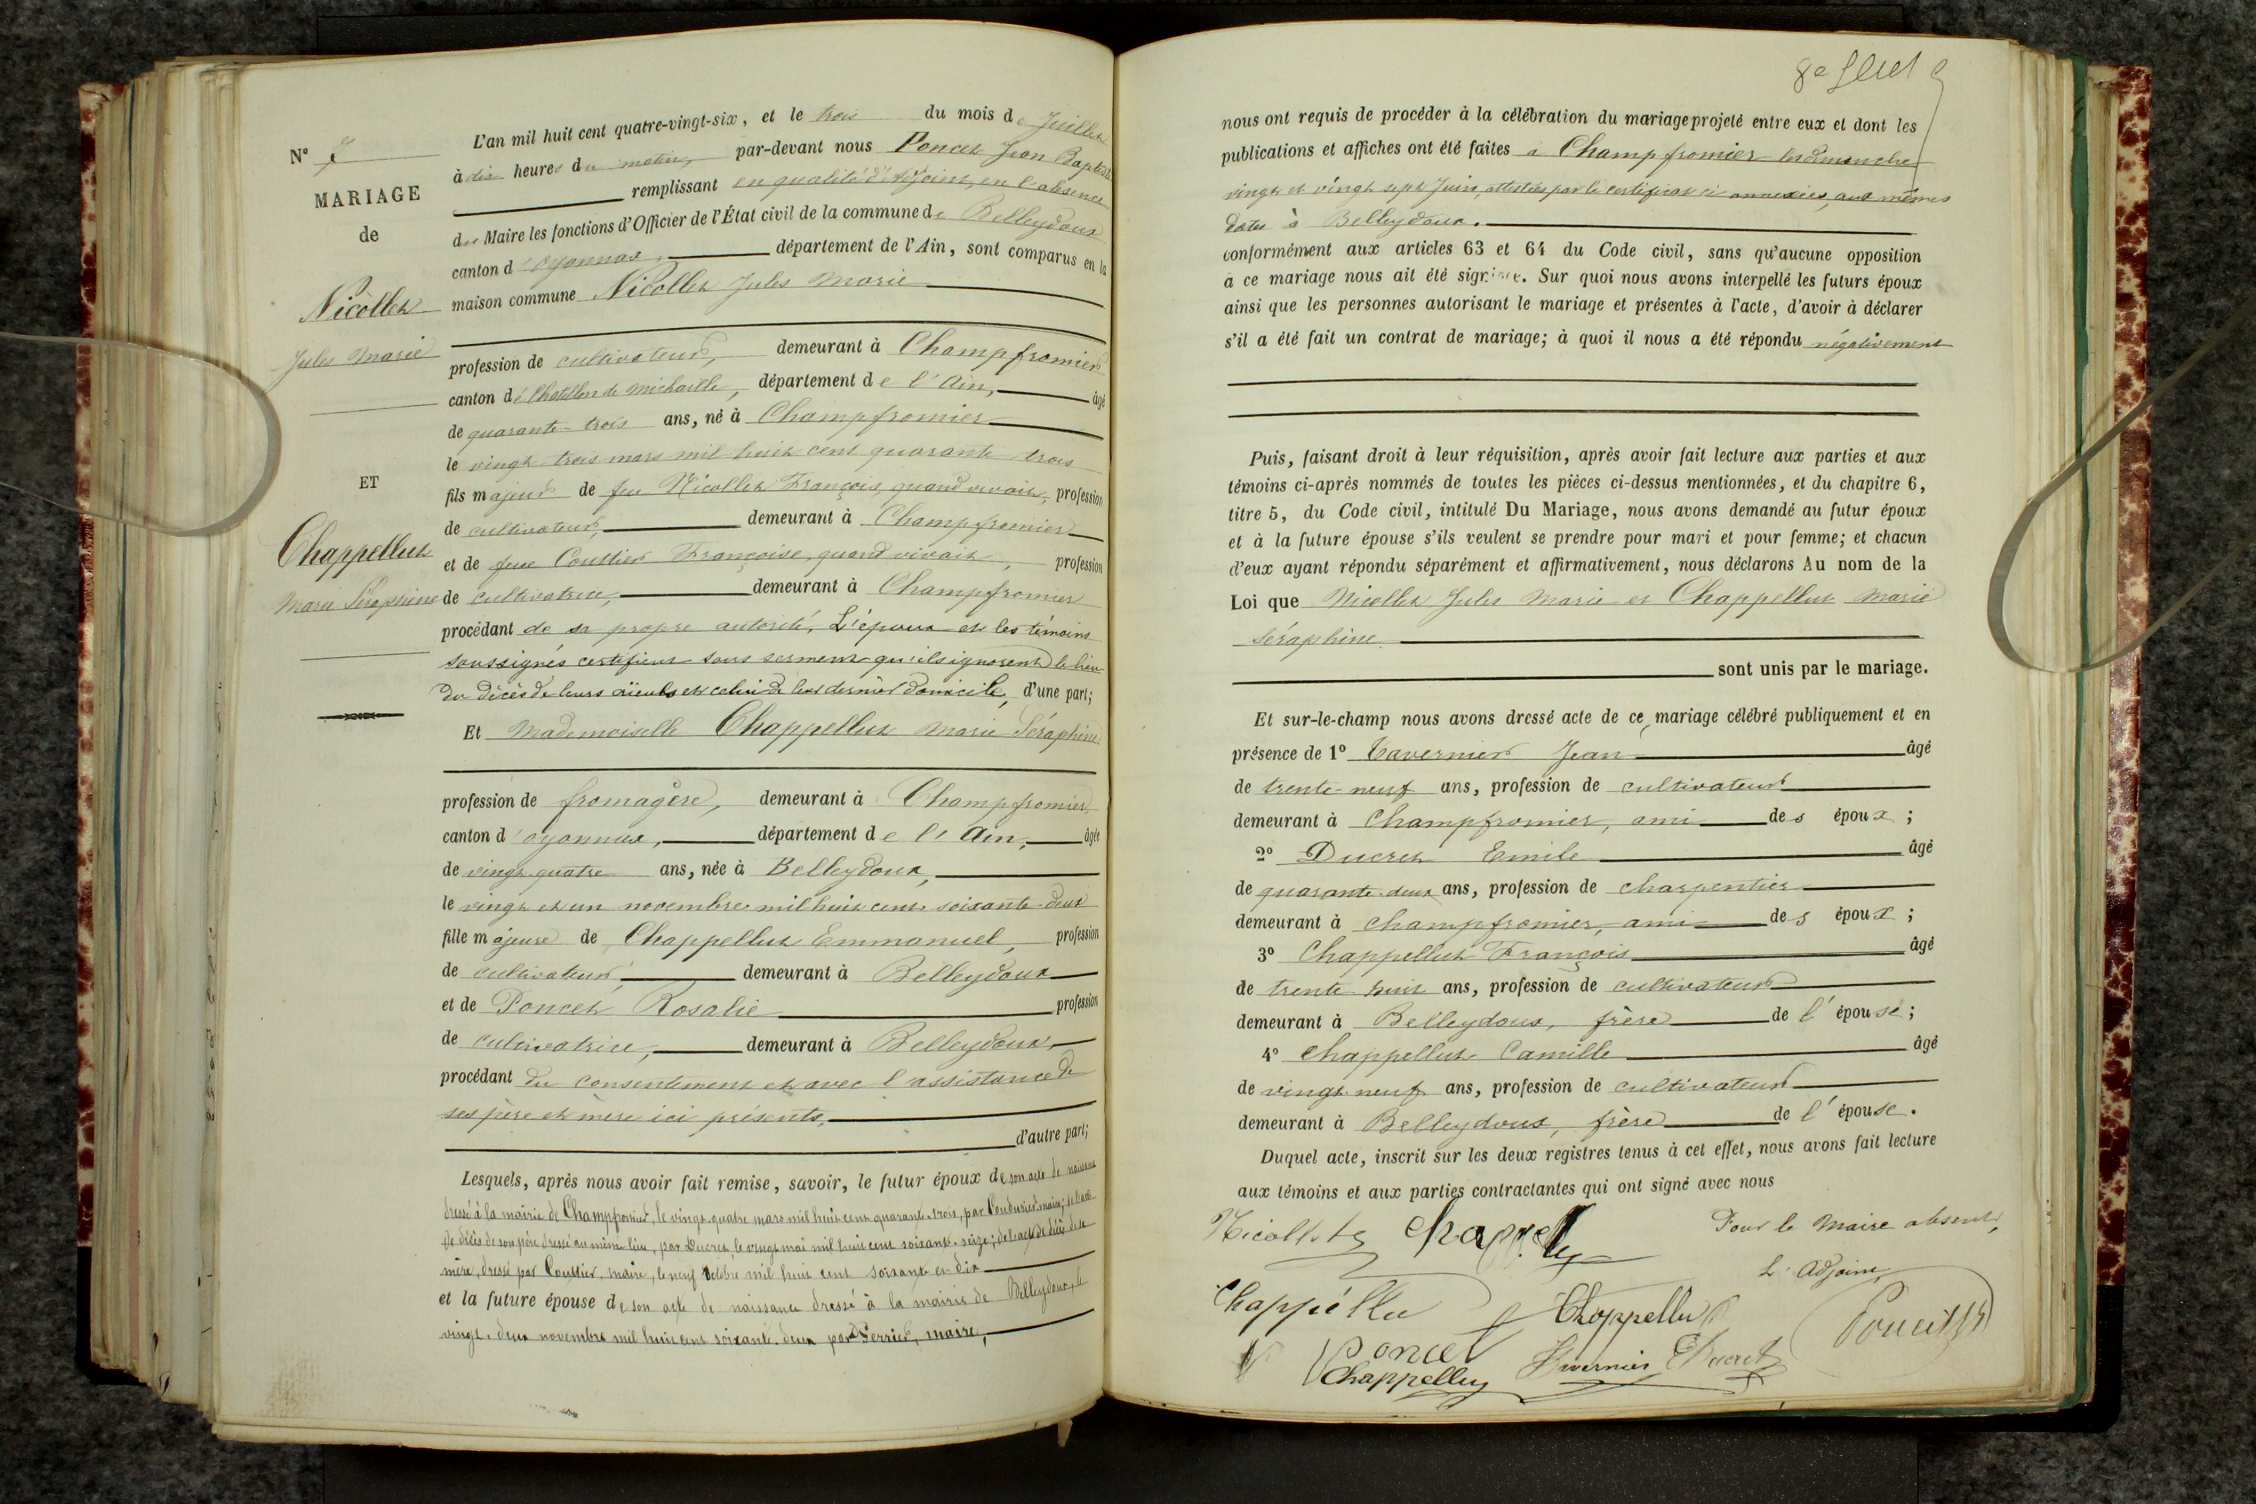 N° 7
MARIAGE
de
Nicollet
Jules Marie
ET
Chappelluz
Marie Séraphine
L'an mil huit cent quatre-vingt-six, et le trois du mois de Juillet
à dix heures du matin, par-devant nous Poncet Jean Baptiste
remplissant en qualité d'Adjoint, en l'absence
du Maire les fonctions d'Officier de l'État civil de la commune de Belleydoux
canton d'oyonnax, département de l'Ain, sont comparus en la
maison commune Nicollet Jules Marie
profession de cultivateur, demeurant à Champfromier
canton de Chatillon de Michaille, département de l'Ain, âgé
de quarante-trois ans, né à Champfromier
le vingt trois mars mil huit cent quarante trois
fils majeur de feu Nicollet François, quand vivait, profession
de cultivateur, demeurant à Champfromier
et de feue Couttier Françoise, quand vivait, profession
de cultivatrice, demeurant à Champfromier
procédant de sa propre autorité, L'époux et les témoins
soussignés certifient sous serment qu'ils ignorent le lieu
du décès de leurs aïeuls et celui de leur dernier domicile, d'une part;
Et Mademoiselle Chappelluz Marie Séraphine
profession de fromagère, demeurant à Champfromier
canton d'oyonnax, département de l'Ain, âgée
de vingt quatre ans, née à Belleydoux,
le vingt et un novembre mil huit cent soixante-deux
fille majeure de Chappelluz Emmanuel, profession
de cultivateur, demeurant à Belleydoux
et de Poncet Rosalie profession
de cultivatrice, demeurant à Belleydoux,
procédant du consentement et avec l'assistance de
ses père et mère ici présents,
d'autre part;
Lesquels, après nous avoir fait remise, savoir, le futur époux de son acte de naissance
dressé à la mairie de Champfromier, le vingt-quatre mars mil huit cent quarante-trois, par Coudurier, maire; de l'acte
de décès de son père dressé au même lieu, par Ducret, le vingt mai mil huit cent soixante-seize; de l'acte de décès de sa
mère, dressé par Couttier, maire, le neuf octobre mil huit cent soixante et dix
et la future épouse de son acte de naissance dressé à la mairie de Belleydoux, le
vingt-deux novembre mil huit cent soixante-deux par Perrier, maire,
8e feuillet
nous ont requis de procéder à la célébration du mariage projeté entre eux et dont les
publications et affiches ont été faites à Champfromier les dimanches
vingt et vingt sept Juin, attestées par le certificat ci annexées, aux mêmes
dates à Belleydoux.
conformément aux articles 63 et 64 du Code civil, sans qu'aucune opposition
à ce mariage nous ait été signifiée. Sur quoi nous avons interpellé les futurs époux
ainsi que les personnes autorisant le mariage et présentes à l'acte, d'avoir à déclarer
s'il a été fait un contrat de mariage; à quoi il nous a été répondu négativement
Puis, faisant droit à leur réquisition, après avoir fait lecture aux parties et aux
témoins ci-après nommés de toutes les pièces ci-dessus mentionnées, et du chapitre 6,
titre 5, du Code civil, intitulé Du Mariage, nous avons demandé au futur époux
et à la future épouse s'ils veulent se prendre pour mari et pour femme; et chacun
d'eux ayant répondu séparément et affirmativement, nous déclarons Au nom de la
Loi que Nicollet Jules Marie et Chappelluz Marie
Séraphine
sont unis par le mariage.
Et sur-le-champ nous avons dressé acte de ce mariage célébré publiquement et en
présence de 1° Tavernier Jean âgé
de trente-neuf ans, profession de cultivateur
demeurant à Champfromier, ami des époux;
2° Ducret Emile âgé
de quarante-deux ans, profession de charpentier
demeurant à champfromier, ami des époux;
3° Chappelluz François âgé
de trente huit ans, profession de cultivateur
demeurant à Belleydoux, frère de l'épouse;
4° Chappelluz Camille âgé
de vingt-neuf ans, profession de cultivateur
demeurant à Belleydoux, frère de l'épouse.
Duquel acte, inscrit sur les deux registres tenus à cet effet, nous avons fait lecture
aux témoins et aux parties contractantes qui ont signé avec nous
Nicollet Chappelluz Pour le Maire absent,
L'Adjoint,
Chappéllu Chappelluz Poncet
Poncet Tavernier Ducret
Chappelluz